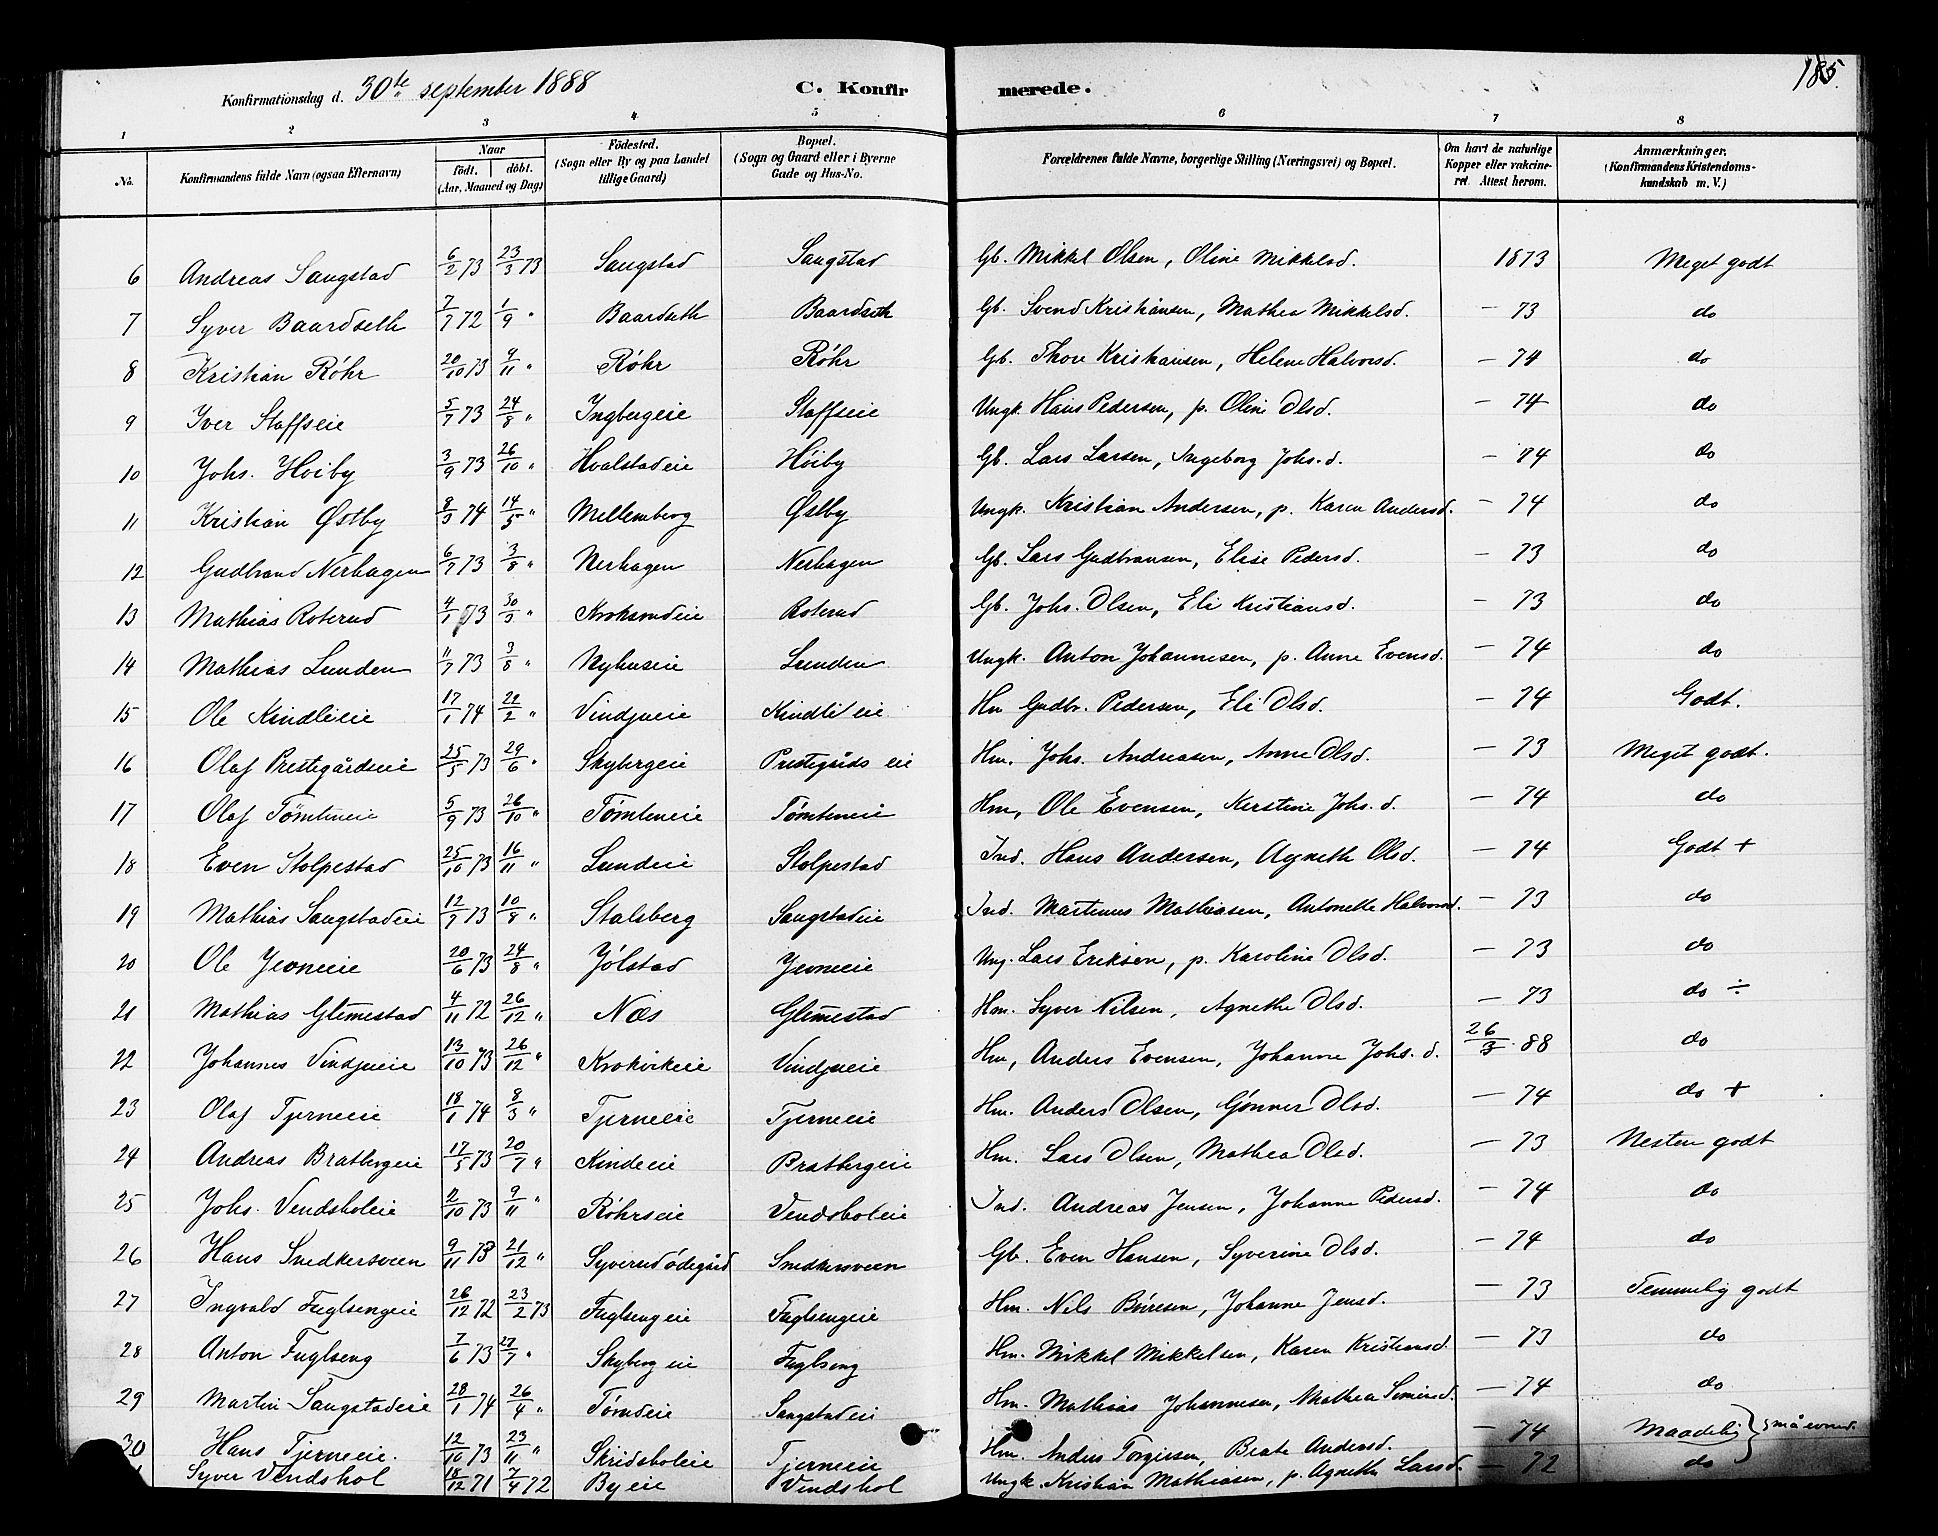 185.
Konfirmationsdag d. 30te september 1888 C. Konfirmerede.
1 2 3 4 5 6 7 8
No. Konfirmandens fulde Navn (ogsaa Efternavn) Naar födt. döbt. (Aar, Maaned og Dag) Födested. (Sogn eller By og paa Landet tillige Gaard) Bopæl. (Sogn og Gaard eller i Byerne Gade og Hus-No. Forældrenes fulde Navne, borgerlige Stilling (Næringsvei) og Bopæl. Om havt de naturlige Kopper eller vakcineret. Attest herom. Anmærkninger. (Konfirmandens Kristendomskundskab m. V.)
6 Andreas Saugstad 6/2 73 23/3 73 Saugstad Saugstad Gb. Mikkel Olsen, Oline Mikkelsd. 1873 Meget godt
7 Syver Baardseth 7/7 72 1/9 " Baardseth Baardseth Gb. Svend Kristiansen, Mathea Mikkelsd. — 73 do
8 Kristian Röhr 20/10 73 9/11 " Röhr Röhr Gb. Thore Kristiansen, Helene Halvorsd. — 74 do
9 Iver Staffseie 5/7 73 24/8 " Ingbergeie Staffseie Ungk. Hans Pedersen, p. Oline Olsd. — 74 do
10 Johs. Höiby 3/9 73 26/10 " Hvalstadeie Höiby Gb. Lars Larsen, Ingeborg Johs. d. — 74 do
11 Kristian Østby 8/3 74 14/5 " Mellemberg Østby Ungk. Kristian Andersen, p. Karen Andersd. — 74 do
12 Gudbrand Nerhagen 6/7 73 3/8 " Nerhagen Nerhagen Gb. Lars Gudbransen, Elise Pedersd. — 73 do
13 Mathias Roterud 4/1 73 30/3 " Kroksrudeie Roterud Gb. Johs. Olsen, Eli Kristiansd. — 73 do
14 Mathias Lunden 11/7 73 3/8 " Nyhuseie Lunden Ungk. Anton Johannesen, p. Anne Evensd. — 74 do
15 Ole Kindlieie 17/1 74 22/2 " Vindjueie Kindlieie Hm Gudbr. Pedersen, Eli Olsd. — 74 Godt.
16 Olaf Prestegårdseie 25/5 73 29/6 " Skybergeie Prestegårds eie Hm. Johs. Andreasen, Anne Olsd. — 73 Meget godt.
17 Olaf Tømteneie 5/9 73 26/10 " Tømteneie Tømteneie Hm, Ole Evensen, Kerstine Johs. d. — 74 do
18 Even Stolpestad 25/10 73 16/11 " Lundeie Stolpestad Ind. Hans Andersen, Agnethe Olsd. — 74 Godt +
19 Mathias Saugstadeie 12/7 73 10/8 " Stalsberg Saugstadeie Ind. Martinus Mathiasen, Antonette Halvorsd. — 73 do
20 Ole Jevneeie 20/6 73 24/8 " Jölstad Jevneeie Ung. Lars Eriksen, p. Karoline Olsd. — 73 do
21 Mathias Glemmestad 4/11 72 26/12 " Næs Glemmestad Hm. Syver Nilsen, Agnethe Olsd. — 73 do ÷
22 Johannes Vindjueie 13/10 73 26/12 " Krokvikeie Vindjueie Hm, Anders Evensen, Johanne Johs. d. 26/3 88 do
23 Olaf Tjerneeie 18/1 74 8/3 " Tjerneeie Tjerneeie Hm. Anders Olsen, Gønner Olsd. — 74 do +
24 Andreas Bratbergeie 17/5 73 20/7 " Kindeeie Bratbergeie Hm. Lars Olsen, Mathea Olsd. — 73 Nesten godt
25 Johs. Vendsholeie 2/10 73 9/11 " Röhrseie Vendsholeie Ind. Andreas Jensen, Johanne Pedersd. — 74 do
26 Hans Snedkersveen 9/11 73 21/12 " Syverudödegård Snedkersveen Gb. Even Hansen, Syverine Olsd. — 74 do
27 Ingvald Fuglsengeie 26/12 72 23/2 73 Fuglsengeie Fuglsengeie Hm. Nils Böresen, Johanne Jensd. — 73 Temmelig godt
28 Anton Fuglseng 7/6 73 27/7 " Skyberg eie Fuglseng Hm. Mikkel Mikkelsen, Karen Kristiansd. — 73 do
29 Martin Saugstadeie 28/1 74 26/4 " Tømdeie Saugstadeie Hm. Mathias Johannesen, Mathea Simensd. — 74 do
30 Hans Tjerneeie. 12/10 73 23/11 " Skridsholeie Tjerneeie Hm. Anders Torgersen, Beate Andersd. — 74 Maadelig } småevned.
Syver Vendshol 18/12 71 7/4 72 Byeie Vendshol Ungk. Kristian Mathiasen, p. Agnethe Larsd. — 72 do